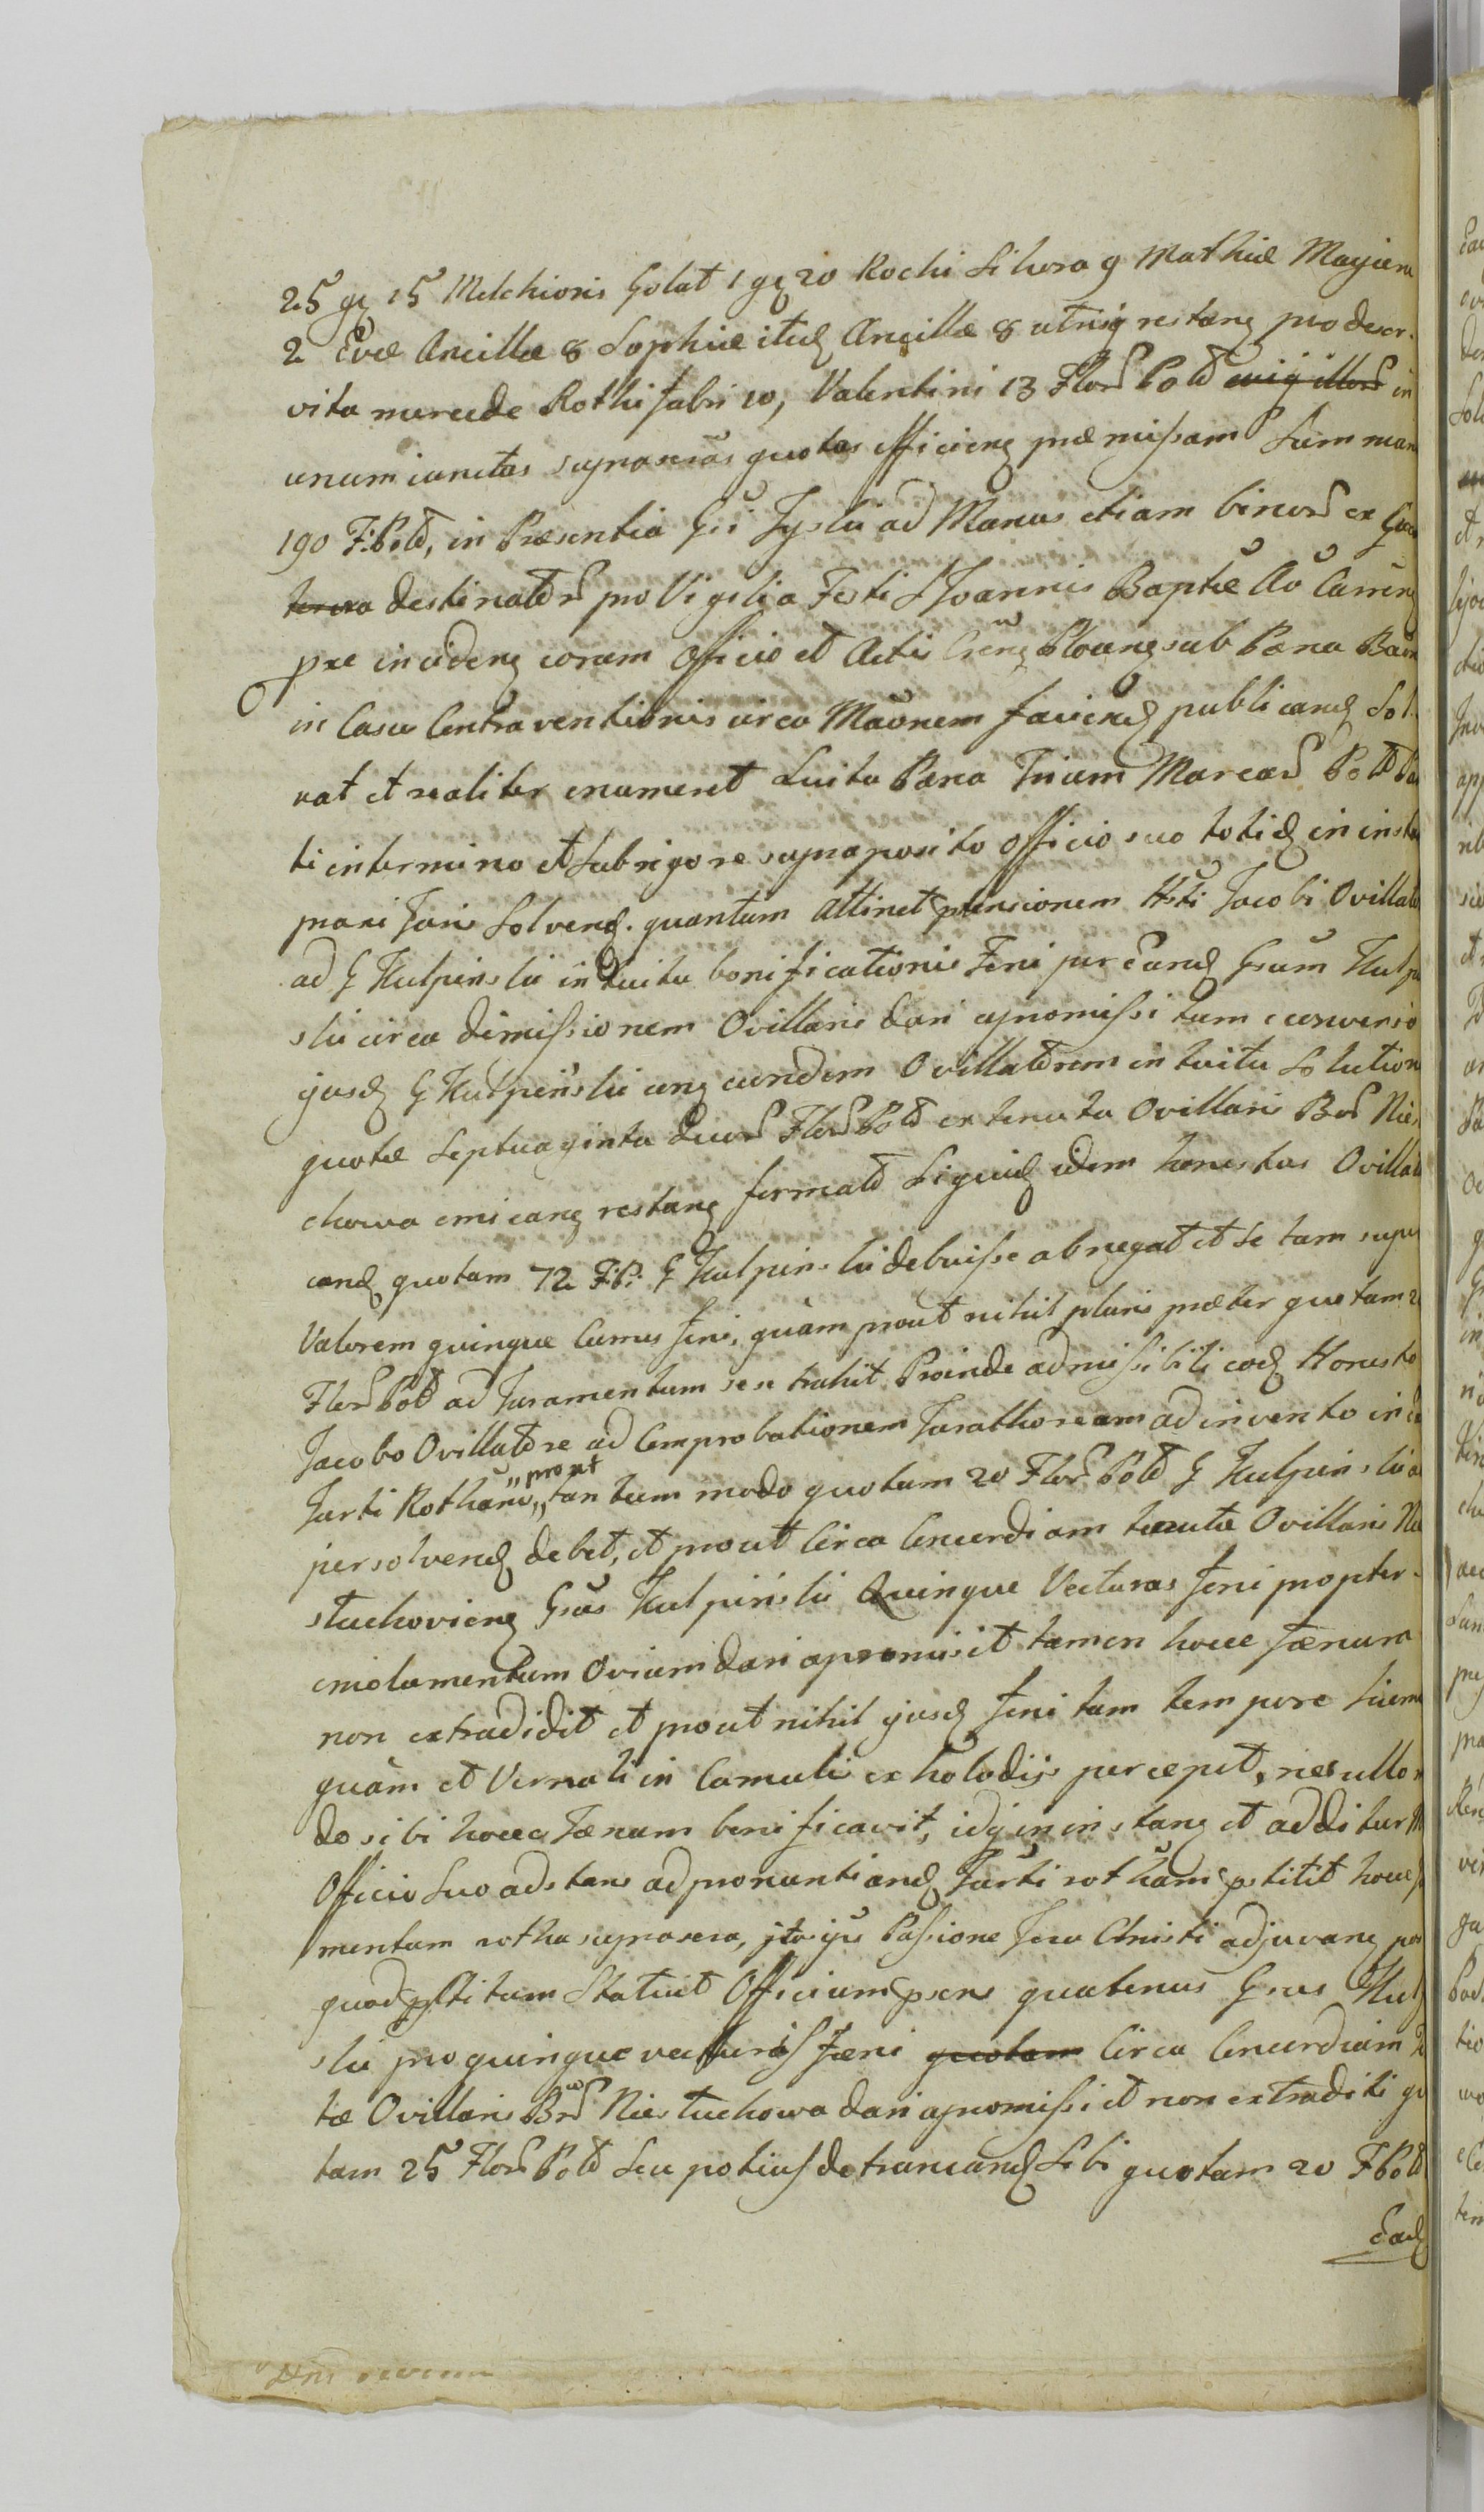 25 gr 15 Melchioris Golat 1 gr 20 Rochi Sikora 9 Mathiæ Magiera
2 Evæ Ancillæ 8 Sophiæ itid Ancillæ 8 utrisq restan pro deser-
vita mercede Rothi fabri 10, Valentini 13 Flor Pold in
unum iunctas supraxsas quotas efficien præmissam Summam
190 F: Pold, in Præsentia Gsi Tyski ad Manus etiam binor ex
destinator pro Vigilia Festi S Joannis Baptæ Ao Curren
pxe inciden coram Officio et Actis Cren Ploven sub Pæna Ban
in Casu Contraventionis circa Maonem faciend publicand Sol-
vat et realiter enumeret Luita Pæna Trium Marcar Pold
ti in termino et sub rigore supraposito Officio suo totid in insta
Solvend. quantum attinet ptensionem Hsti Jacobi Ovillato
ad G Kulpinski intuitu bonificationis Feni per Eund Gsum Kulp
ski circa dimissionem Ovillaris dari apromissi tum conversio
ijusd G Kulpinski cum eundem Ovillatorem intuitu Solution
quotæ Septuaginta duor Flor Pold ex tenuta Ovillaris Bor Nies
chowa emican restan format Siquid idem honestus Ovillato
eand quotam 72 F:P: G Kulpinski debuisse abnegat et se tam super
Valorem quinque Curus feni, quàm prout nihil pluris præter quotam 20
Flor Pold ad Juramentum sese trahit Proinde admissibili eod Honesto
Jacobo Ovillatore ad Comprobationem Jurathoream ad invento in
Jurti Rotham „prout„ tantum modo quotam 20 Flor Pold G Kulpinski
persolvend debet, et prout Circa Concordiam tenutæ Ovillaris
stuchovien Gsus Kulpinski Quinque Vecturas feni propter
emolumentum Ovium dari apromisit tamen hocce fænum
non extradidit et prout nihil ijusd feni tam tempore hiema
quàm et Vernali in Cumulis ex holodijs percepit, nec ullo
do sibi hocce fænum bonificavit, idq in instan et additur
Officio Suo adstans ad pronuntiand Jurti rotham pstitit hocce
mentum rotha supraxsa, ita ijus Passione Jesu Christi adjuvan
quod pstitum Statuit Officium psens quatenus Gsus Kulp
ski pro quinque vecturis fæni quotam Circa Concordiam
tæ Ovillaris Bor Niestuchowa dari apromissi et non extraditi quo
tam 25 Flor Pold Seu potius detruncand Sibi quotam 20 F Pold
Ead